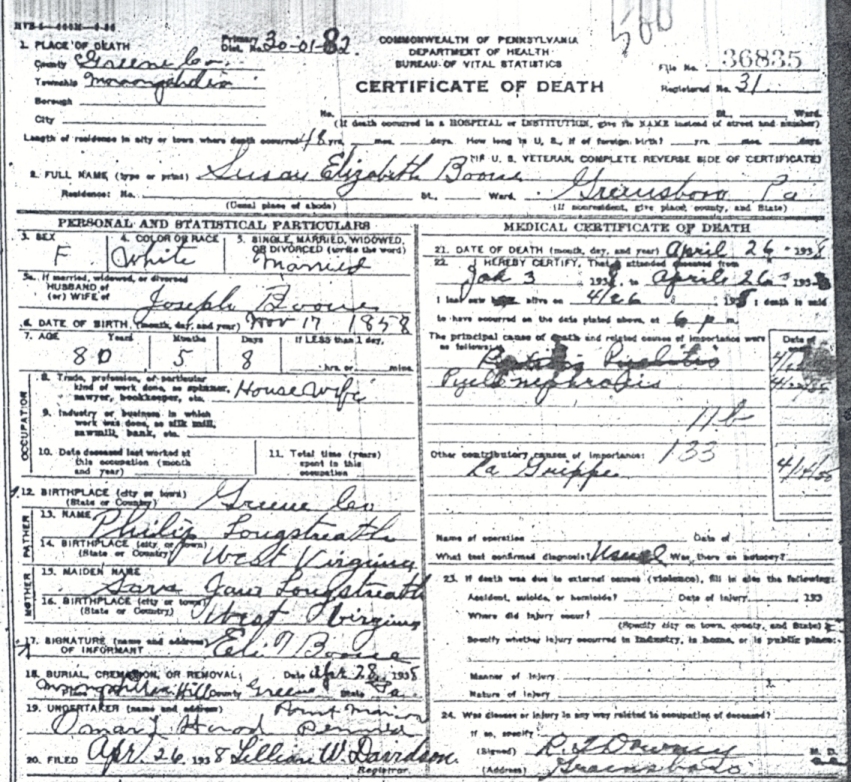 500
Primary Dist. No. 30-01-82
COMMONWEALTH OF PENNSYLVANIA
DEPARTMENT OF HEALTH
BUREAU OF VITAL STATISTICS
CERTIFICATE OF DEATH
File No. 36835
Registered No. 31
1. PLACE OF DEATH
County Greene Co.
Township
Borough
City
No. St., Ward.
(If death occurred in a HOSPITAL or INSTITUTION, give its NAME instead of street and number)
Length of residence in city or town where death occurred yrs. mos. days. How long in U. S., if of foreign birth? yrs. mos. days.
(IF U. S. VETERAN, COMPLETE REVERSE SIDE OF CERTIFICATE)
2. FULL NAME (type or print) Susan Elizabeth Boone
Residence: No. St., Ward. Greensboro Pa
(Usual place of abode) (If nonresident, give place, county, and State)
PERSONAL AND STATISTICAL PARTICULARS
3. SEX F
4. COLOR OR RACE White
5. SINGLE, MARRIED, WIDOWED, OR DIVORCED (write the word) Married
5a. If married, widowed, or divorced
HUSBAND of
(or) WIFE of Joseph Boone
6. DATE OF BIRTH (month, day, and year) Nov 17 1858
7. AGE Years 80 Months 5 Days 8 If LESS than 1 day, hrs. or mins.
OCCUPATION
8. Trade, profession, or particular kind of work done, as spinner, sawyer, bookkeeper, etc. House wife
9. Industry or business in which work was done, as silk mill, sawmill, bank, etc.
10. Date deceased last worked at this occupation (month and year)
11. Total time (years) spent in this occupation
12. BIRTHPLACE (city or town) (State or Country) Greene Co
FATHER
13. NAME Philip Longstreath
14. BIRTHPLACE (city or town) (State or Country) West Virginia
MOTHER
15. MAIDEN NAME Sara Jane Longstreath
16. BIRTHPLACE (city or town) (State or Country) West Virginia
17. SIGNATURE (name and address) OF INFORMANT Eli T Boone
18. BURIAL, CREMATION, OR REMOVAL: Date Apr 28, 1938
Hill County Greene State Pa.
19. UNDERTAKER (name and address)
Omar
20. FILED Apr 26, 1938 Lillian W. Davidson
Registrar.
MEDICAL CERTIFICATE OF DEATH
21. DATE OF DEATH (month, day, and year) April 26 - 1938
22. I HEREBY CERTIFY, That I attended deceased from
3 193 to April 26 193
I last saw alive on 4/26 193 ; death is said
to have occurred on the date stated above, at 6 p m.
The principal cause of death and related causes of importance were as follows: Date of
Pyelitis
Pyelonephrosis
11b
133
Other contributory causes of importance:
La Grippe
Name of operation Date of
What test confirmed diagnosis? Usual Was there an autopsy?
23. If death was due to external causes (violence), fill in also the following:
Accident, suicide, or homicide? Date of injury 193
Where did injury occur?
(Specify city or town, county, and State)
Specify whether injury occurred in industry, in home, or in public place:
Manner of injury
Nature of injury
24. Was disease or injury in any way related to occupation of deceased?
If so, specify
(Signed) Downey M. D.
(Address) Greensboro